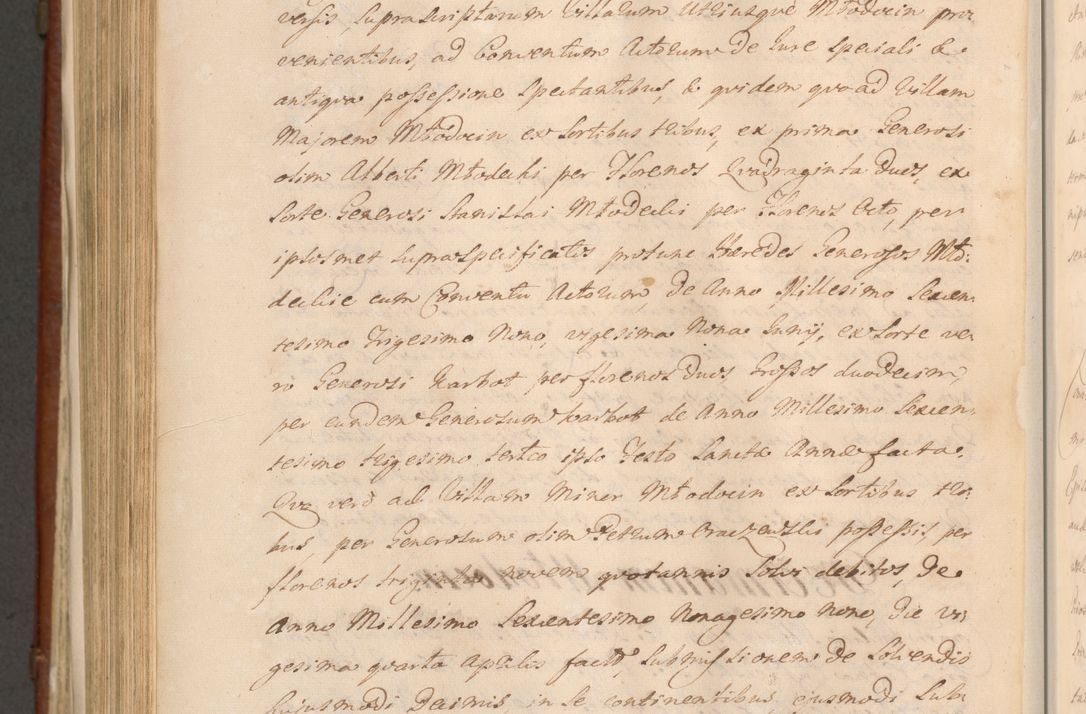 versis, supradscriptarum Villarum Utriusque Młodocin pro
venientibus, ad Conventum Actorum de Iure speciali &
antiqua possessione spectantibus, & quidem quo ad Villam
Majorem Młodocin ex Sortibus tribus, ex prima Generosi
olim Alberti Młodecki per Florenos Quadraginta duos, ex
Sorte Generosi Stanislai Młodecki per Florenos Octo, per
ipsosmet supraspecificatos protunc Hæredes Generosos Mło:
deckie cum Conventu Actorum, de Anno Millesimo Sexcen
tesimo Trigesimo Nono, vigesima Nona Junij, ex Sorte ve
ro Generosi Karbot per florenos duos, Grossos duodecim,
per eundem Generosum Karbot de Anno Millesimo Sexcen
tesimo trigesimo tertio ipso Festo Sanctæ Annæ facta.
Quo verò ad Villam Minor Młodocin ex Sortibus tri
bus, per Generosum olim Petrum possessis, per
florenos triginta novem quotannis Solvi debitos, de
Anno Millesimo Sexcentesimo Nonagesimo nono, die vi
gesima quarta Aprilis facto, Submissionem de Solvendis
hujusmodi decimis in se continentibus, ejusmodi Sub